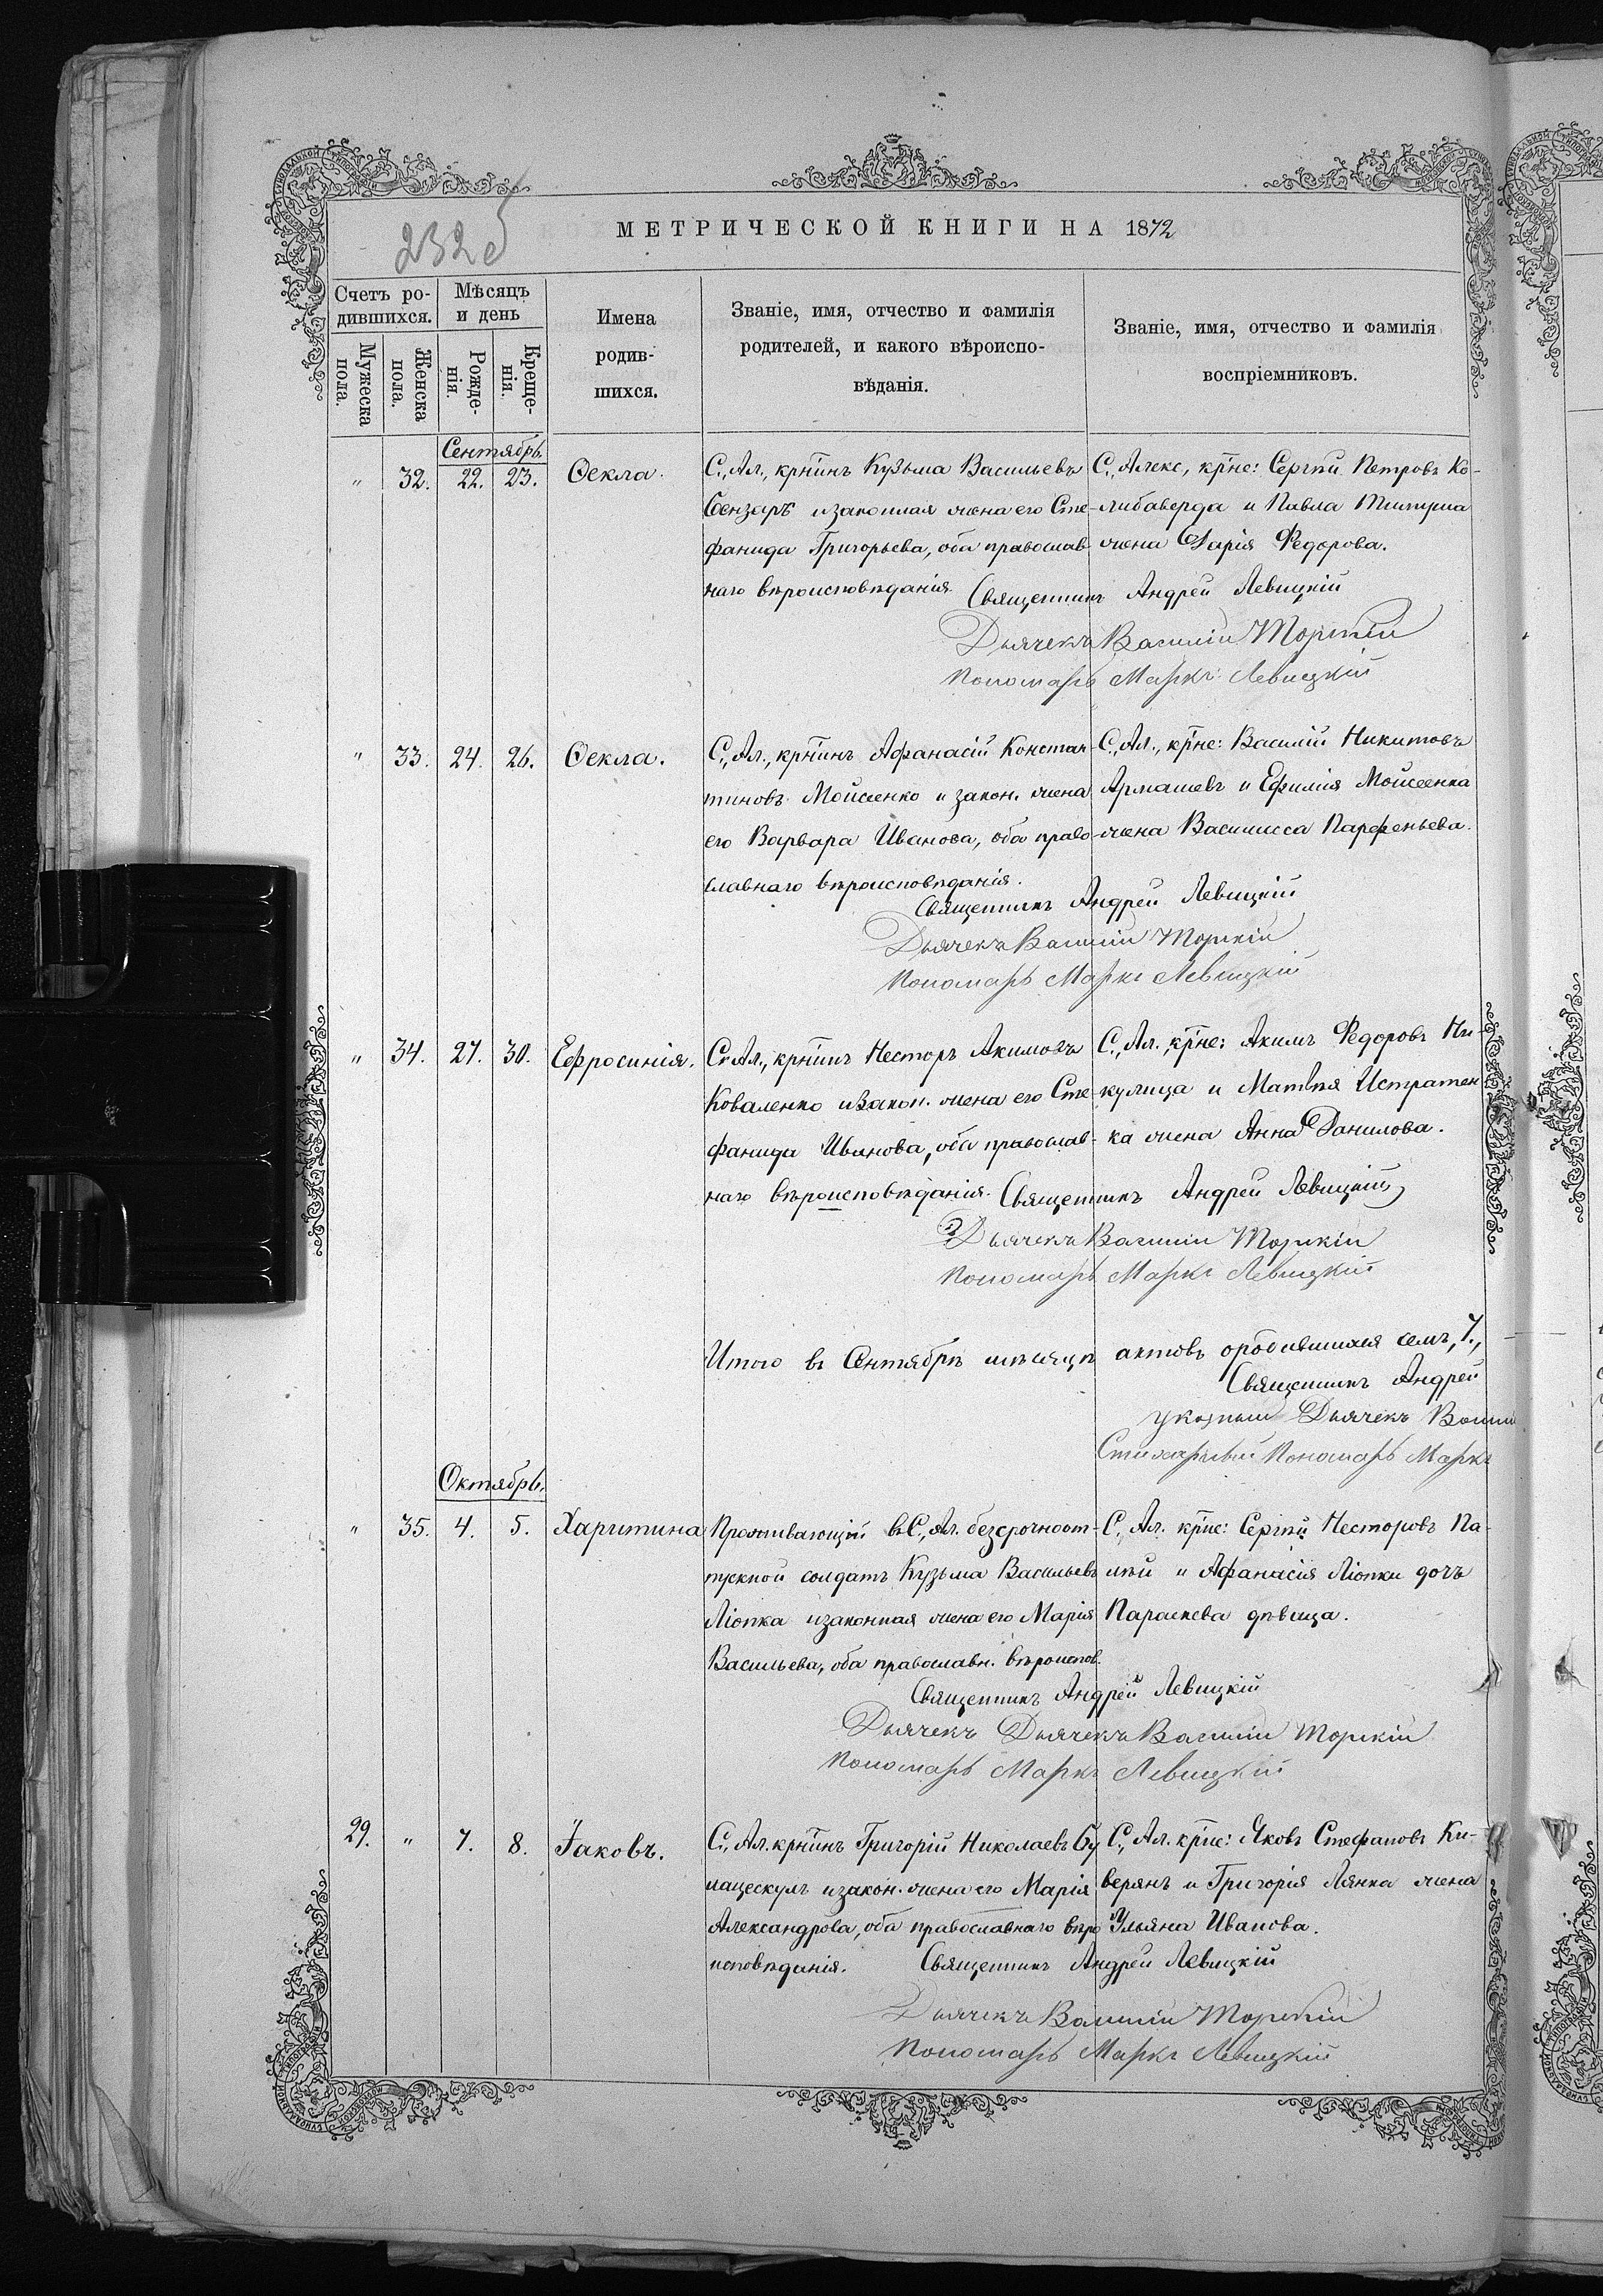 232 об
МЕТРИЧЕСКОЙ КНИГИ НА 1872
Счетъ ро-
дившихся.
Мужеска
пола.
Женска
пола.
Мѣсяцъ
и день
Рожде-
нія.
Креще-
нія.
Имена
родив-
шихся.
Званіе, имя, отчество и фамилія
родителей, и какого вѣроиспо-
вѣданія.
Званіе, имя, отчество и фамилія
воспріемниковъ.
Сентябрь.
" 32. 22. 23. Ѳекла.
С., Ал., кр͞нинъ Кузьма Васильевъ
Бензаръ и законная жена его Сте-
фанида Григорьева, оба православ
наго вѣроисповѣданія.
С., Алекс, кр͞не: Сергѣй Петровъ Ко-
либаверда и Павла
жена Дарія Федорова.
Священникъ Андрей Левицкій
Дьячекъ Василій Торскій
Пономарь Маркъ Левицкій
" 33. 24. 26. Ѳекла.
С., Ал., кр͞нинъ Афанасій Констан-
тиновъ Мойсеенко и закон. жена
его Варвара Иванова, оба право-
славнаго вѣроисповѣданія.
С., Ал., кр͞не: Василій Никитовъ
Армашевъ и Ефимія Мойсеенка
жена Василисса Парфеньева.
Священникъ Андрей Левицкій
Дьячекъ Василій Торскій
Пономарь Маркъ Левицкій
" 34. 27. 30. Ефросинія.
С. Ал., кр͞нинъ Несторъ Акимовъ
Коваленко и закон. жена его Сте-
фанида Иванова, оба православ-
наго вѣроисповѣданія.
С., Ал., кр͞не: Акимъ Федоровъ Ни-
кулица и Матвѣя Истратен
ка жена Анна Данилова.
Священникъ Андрей Левицкій
Дьячекъ Василій Торскій
Пономарь Маркъ Левицкій
Итого въ Сентябрѣ мѣсяцѣ актовъ ородившихся семь, 7.,
Священникъ Андрей
указный Дьячекъ Васили
Стихарный Пономарь Маркъ
Октябрь.
" 35. 4. 5. Харитина
Проживающій въ С., Ал. безсрочноот-
пускной солдатъ Кузьма Васильевъ
Ліопка и законная жена его Марія
Васильева, оба православн. вѣроиспов.
С., Ал. кр͞не: Сергѣй Несторовъ Па-
лій и Афанасія Ліопки дочь
Параскева дѣвица.
Священникъ Андрей Левицкій
Дьячекъ Дьячекъ Василій Торскій
Пономарь Маркъ Левицкій
29. " 7. 8. Іаковъ.
С., Ал. кр͞нинъ Григорій Николаевъ
и закон. жена его Марія
Александрова, оба православнаго вѣро
исповѣданія.
С., Ал. кр͞не: Яковъ Стефановъ Ки-
верянъ и Григорія Лянка жена
Ульяна Иванова.
Священникъ Андрей Левицкій
Дьячекъ Василій Торскій
Пономарь Маркъ Левицкій